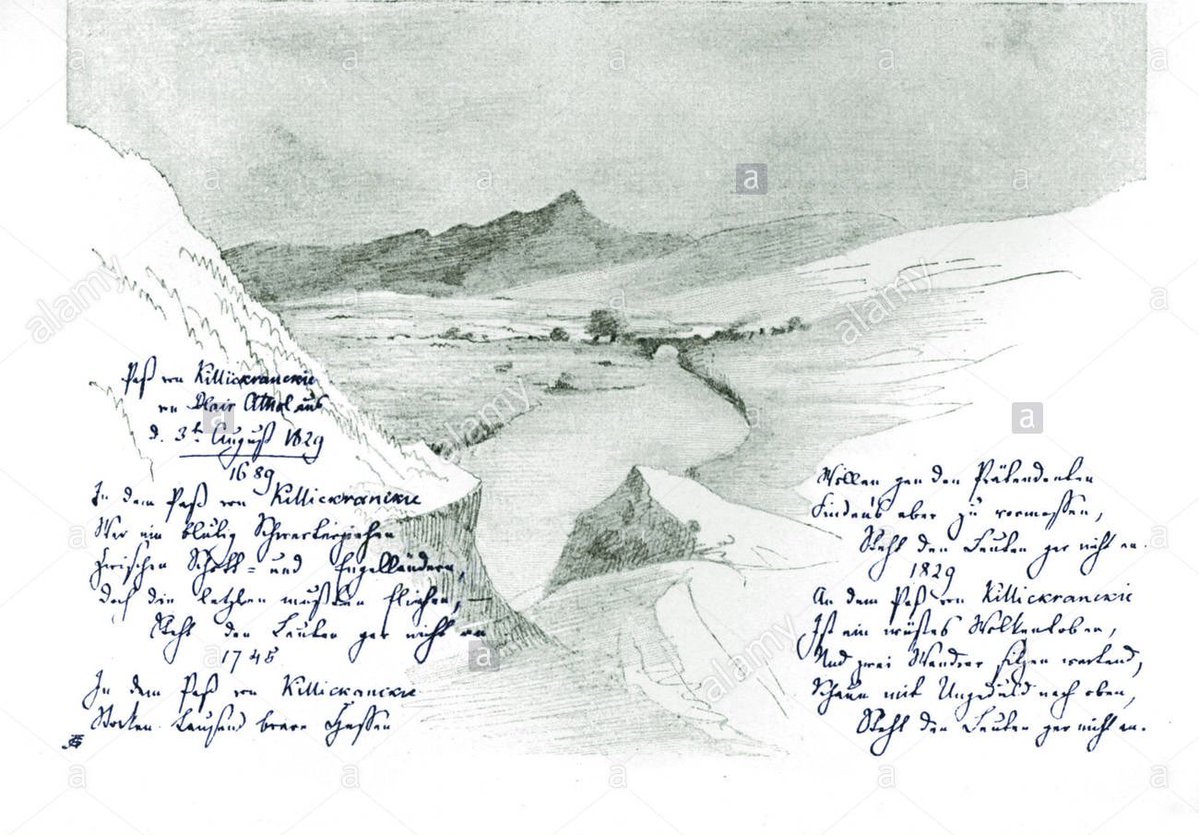 Paß von Killickranckie
von Blair Athol aus
d. 3t August 1829
1689
In dem Paß von Killickranckie
War ein blutig Schwerterziehen
Zwischen Schott= und Engelländern,
Doch die letzten mußten fliehen,
Steht den Leuten gar nicht an
1745
In dem Paß von Killickanckie
Stocken tausend brave Hessen
Wollen gen den Prätendenten
Finden's aber zu vermessen,
Steht den Leuten gar nicht an.
1829
An dem Paß von Killickranckie
Ist ein wüstes Wolkentoben,
Und zwei Wandrer sitzen wartend,
Schaun mit Ungeduld nach oben,
Steht den Leuten gar nicht an.
alamy
alamy
alamy
alamy